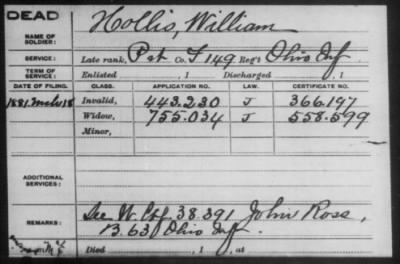 DEAD
NAME OF SOLDIER: Hollis, William
SERVICE: Late rank, Pvt Co. I 149 Reg't Ohio Inf
TERM OF SERVICE: Enlisted , 1 Discharged , 1
DATE OF FILING. CLASS. APPLICATION NO. LAW. CERTIFICATE NO.
1881. Mch 18 Invalid, 443.230 J 366.197
Widow, 755.034 J 558.599
Minor,
ADDITIONAL SERVICES:
REMARKS: See W. Ctf 38.391 John Ross,
B. 63 Ohio Inf.
Died , 1 , at